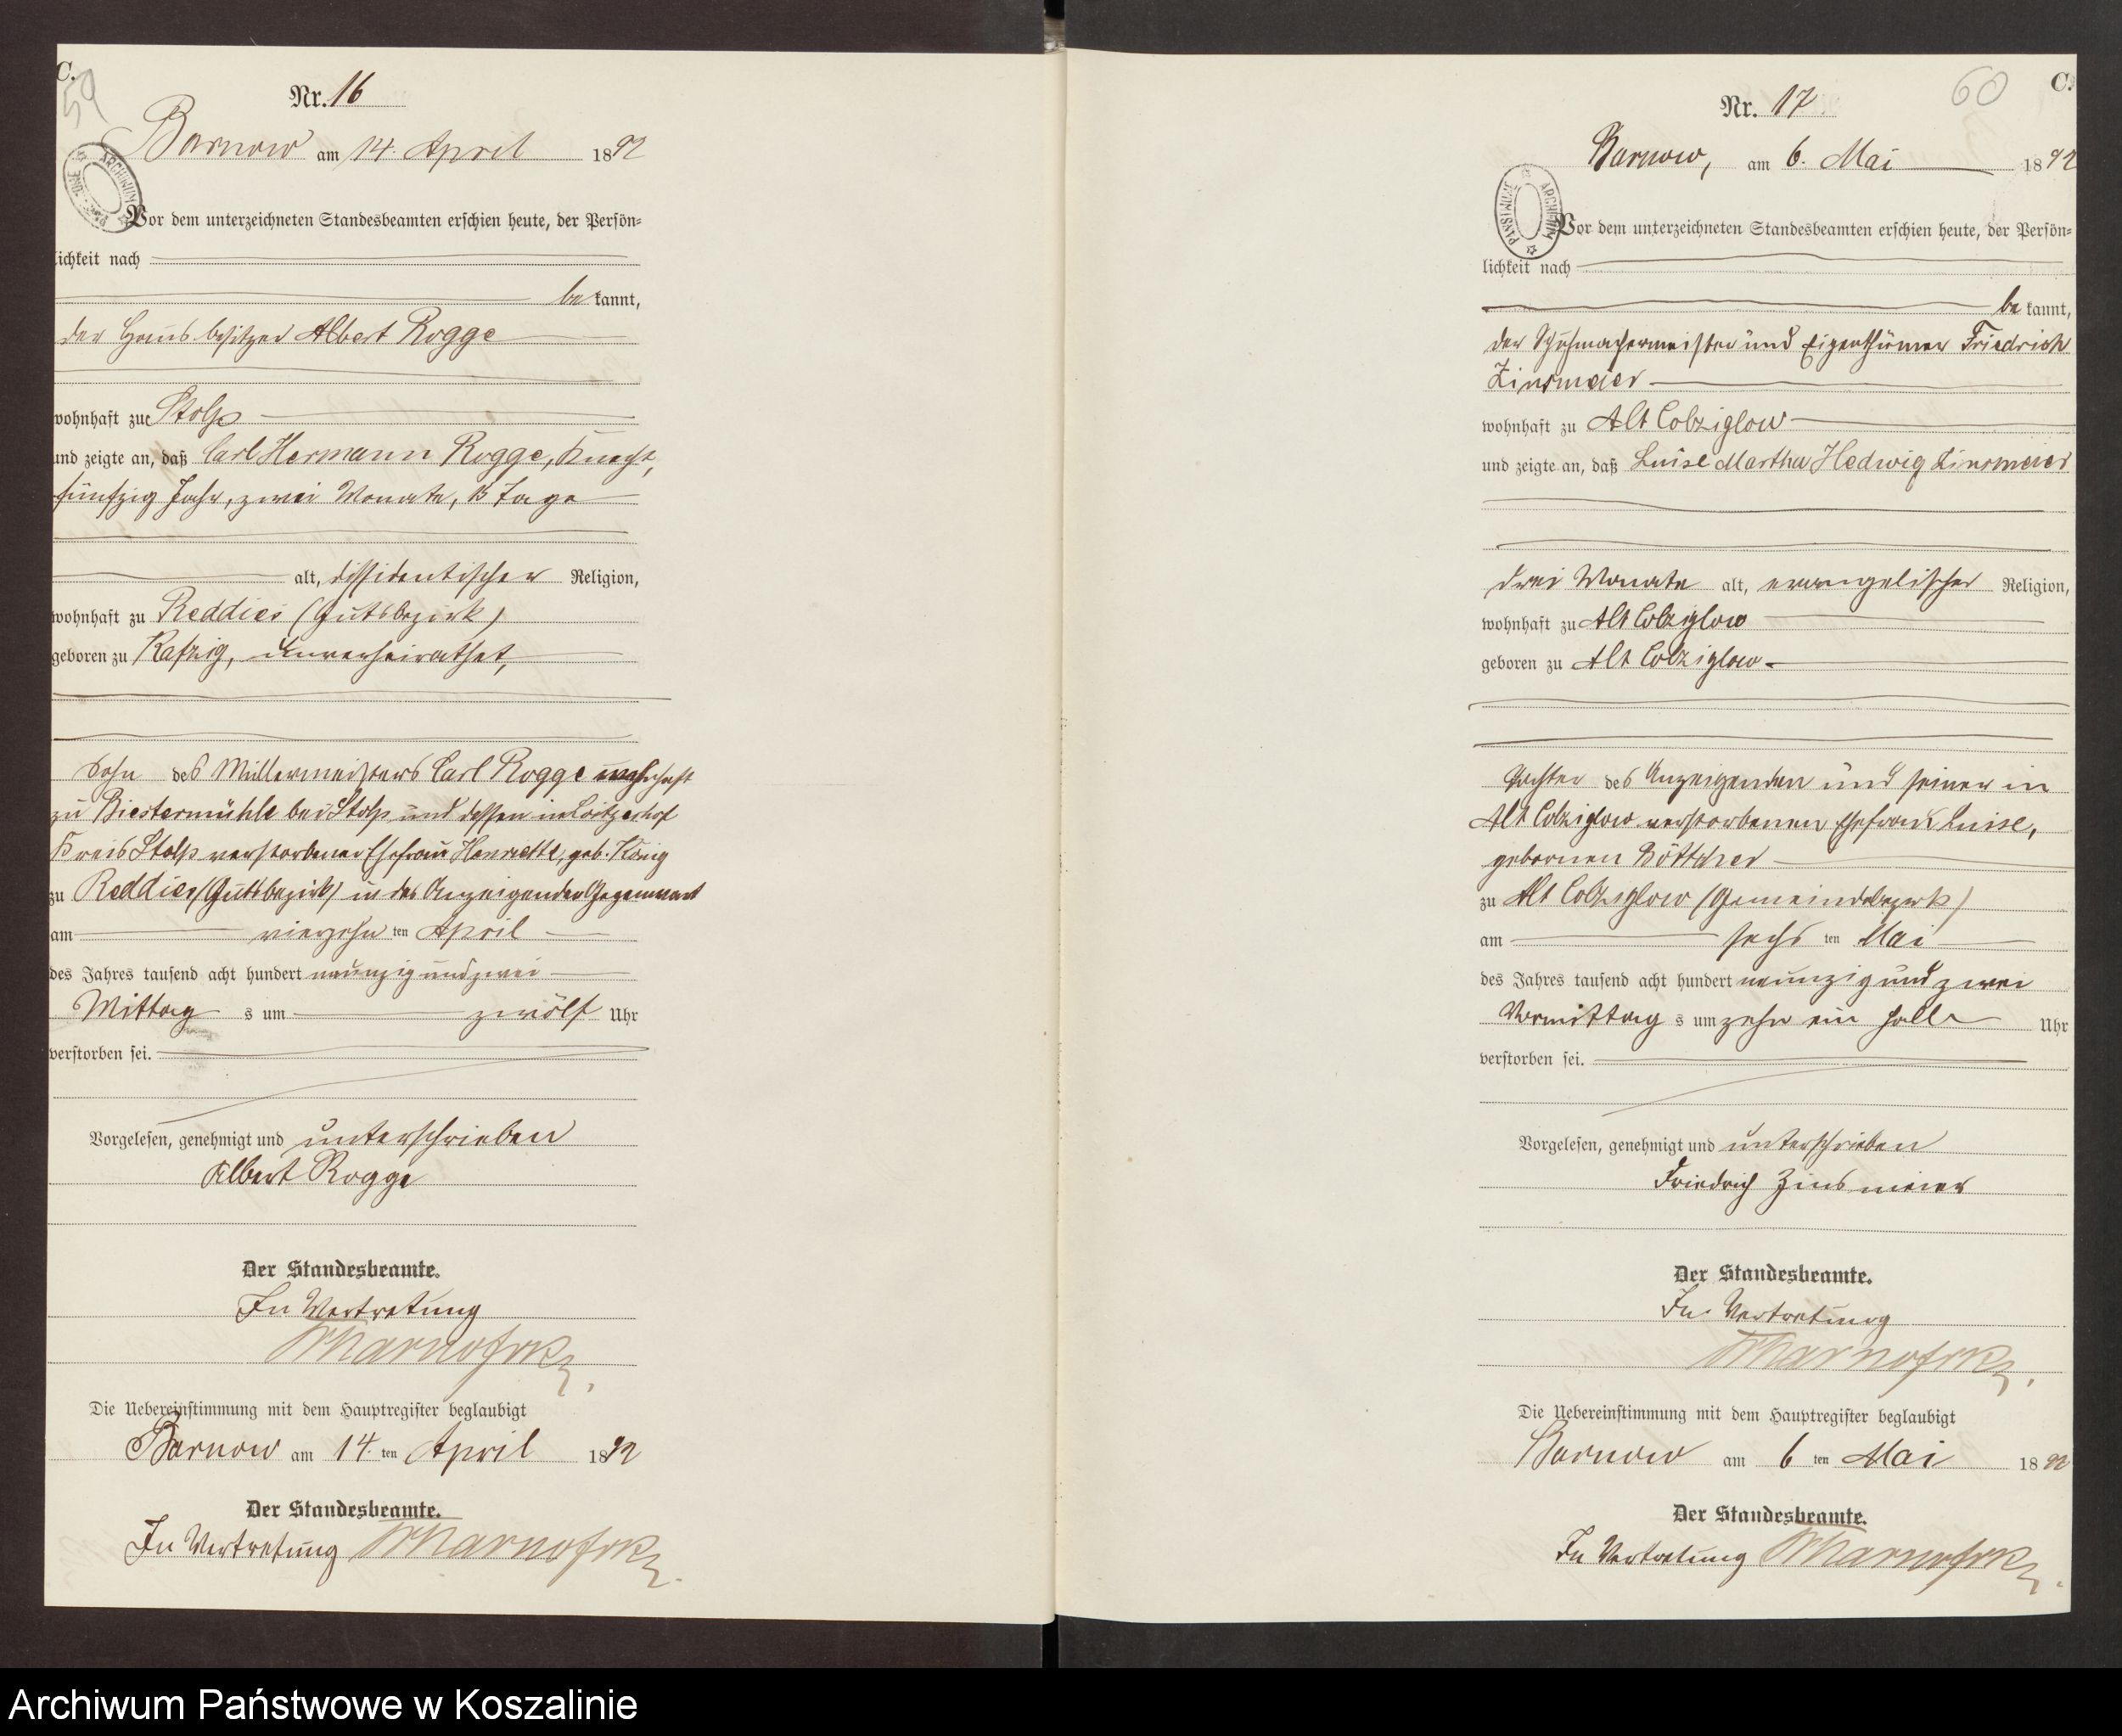 C.
59
Nr. 16
Barnow am 14. April 1892
Vor dem unterzeichneten Standesbeamten erschien heute, der Persön=
lichkeit nach
be kannt,
der Hausbesitzer Albert Rogge
wohnhaft zu Stolp
und zeigte an, daß Carl Hermann Rogge, Knecht,
fünfzig Jahr, zwei Monate, 13 Tage
alt, dissidentischer Religion,
wohnhaft zu Reddies (Gutsbezirk)
geboren zu Rafzig, unverheirathet,
Sohn des Müllermeisters Carl Rogge wohnhaft
zu Biestermühle bei Stolp und dessen in Loitzerhof
Kreis Stolp verstorbener Ehefrau Henriette, geb. König
zu Reddies (Gutsbezirk) in des Anzeigenden Gegenwart
am vierzehn ten April
des Jahres tausend acht hundert neunzig und zwei
Mittag s um zwölf Uhr
verstorben sei.
Vorgelesen, genehmigt und unterschrieben
Albert Rogge
Der Standesbeamte.
In Vertretung
Die Uebereinstimmung mit dem Hauptregister beglaubigt
Barnow am 14. ten April 1892
Der Standesbeamte.
In Vertretung
C.
60
Nr. 17
Barnow, am 6. Mai 1892
Vor dem unterzeichneten Standesbeamten erschien heute, der Persön=
lichkeit nach
be kannt,
der Schuhmachermeister und Eigenthümer Friedrich
Zinsmeier
wohnhaft zu Alt Colziglow
und zeigte an, daß Luise Martha Hedwig Zinsmeier
drei Monate alt, evangelischer Religion,
wohnhaft zu Alt Colziglow
geboren zu Alt Colziglow
Tochter des Anzeigenden und seiner in
Alt Colziglow verstorbenen Ehefrau Luise,
gebornen Böttcher
zu Alt Colziglow (Gemeindebezirk)
am sechs ten Mai
des Jahres tausend acht hundert neunzig und zwei
Vormittag s um zehn ein halb Uhr
verstorben sei.
Vorgelesen, genehmigt und unterschrieben
Friedrich Zinsmeier
Der Standesbeamte.
In Vertretung
Die Uebereinstimmung mit dem Hauptregister beglaubigt
Barnow am 6 ten Mai 1892
Der Standesbeamte.
In Vertretung
Archiwum Państwowe w Koszalinie